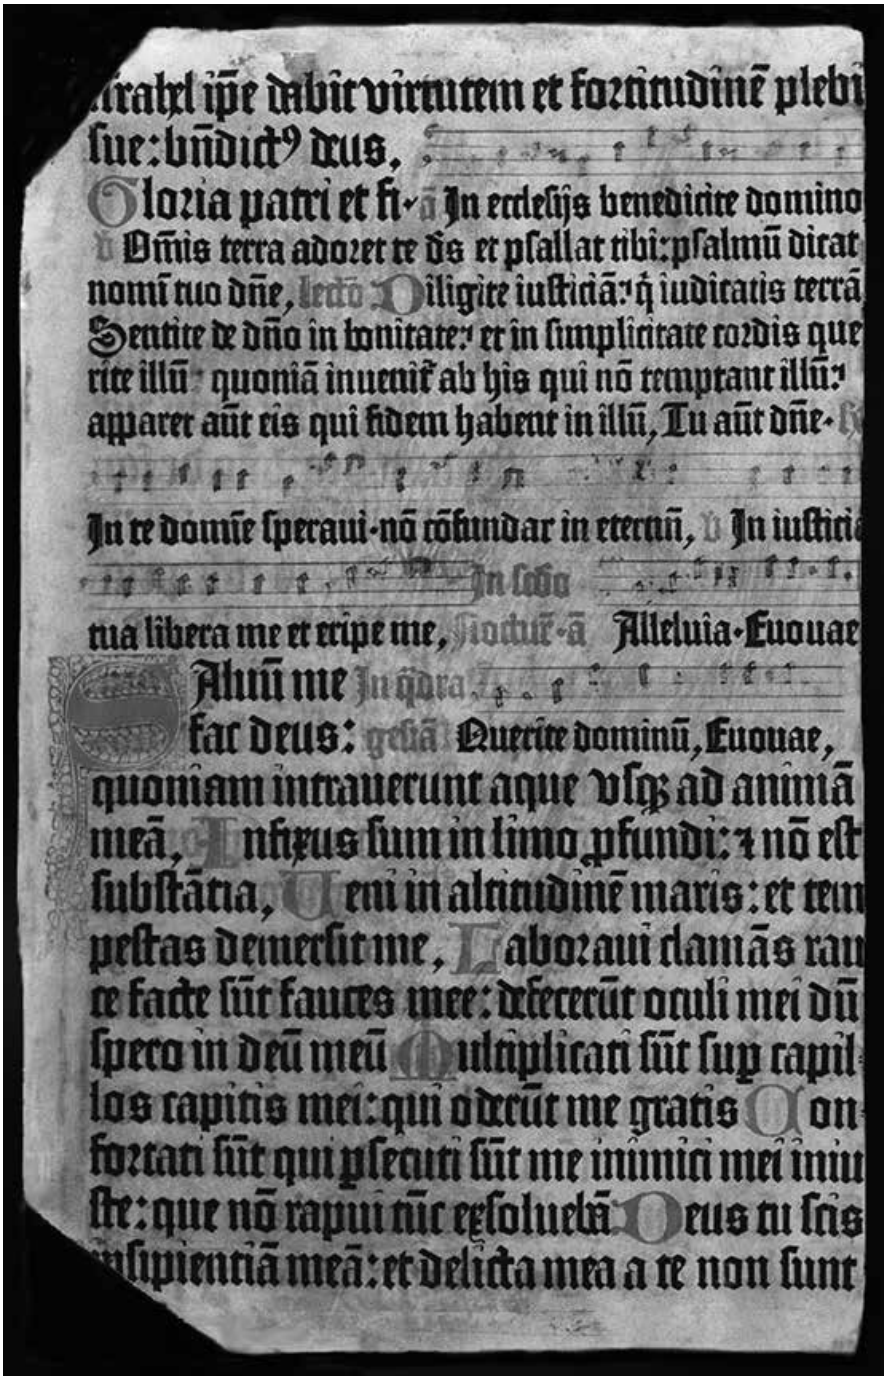 israhel ip̄e dabit virtutem et fortitudinē plebi
sue: bn̄dictꝰ deus,
Gloria patri et fi· ā In ecclesijs benedicite domino
v Om̄is terra adoret te ds̄ et psallat tibi: psalmū dicat
nomī tuo dn̄e, lectō Diligite iusticiā: q̄ iudicatis terrā
Sentite de dn̄o in bonitate: et in simplicitate cordis que
rite illū: quoniā inuenit᷑ ab his qui nō temptant illū:
apparet aūt eis qui fidem habent in illū, Tu aūt dn̄e·
In te domīe speraui· nō cōfundar in eternū, v In iusticia
In scḏo
tua libera me et eripe me, Noctur̄· ā Alleluia· Euouae
Saluū me In q̄dra
fac deus: gesiā Querite dominū, Euouae,
quoniam intrauerunt aque vsqꝫ ad animā
meā, Infixus sum in limo ꝓfundi: ⁊ nō est
substātia, Ueni in altitudinē maris: et tem
pestas demersit me, Laboraui clamās rau
ce facte sūt fauces mee: defecerūt oculi mei dū
spero in deū meū Multiplicati sūt suꝑ capil-
los capitis mei: qui oderūt me gratis Con-
fortati sūt qui ꝑsecuti sūt me inimici mei iniu
ste: que nō rapui tūc exsoluebā Deus tu scis
insipientiā meā: et delicta mea a te non sunt